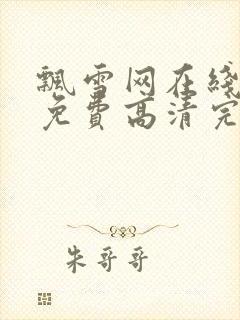 飘雪网在线
免费高清完
朱哥哥